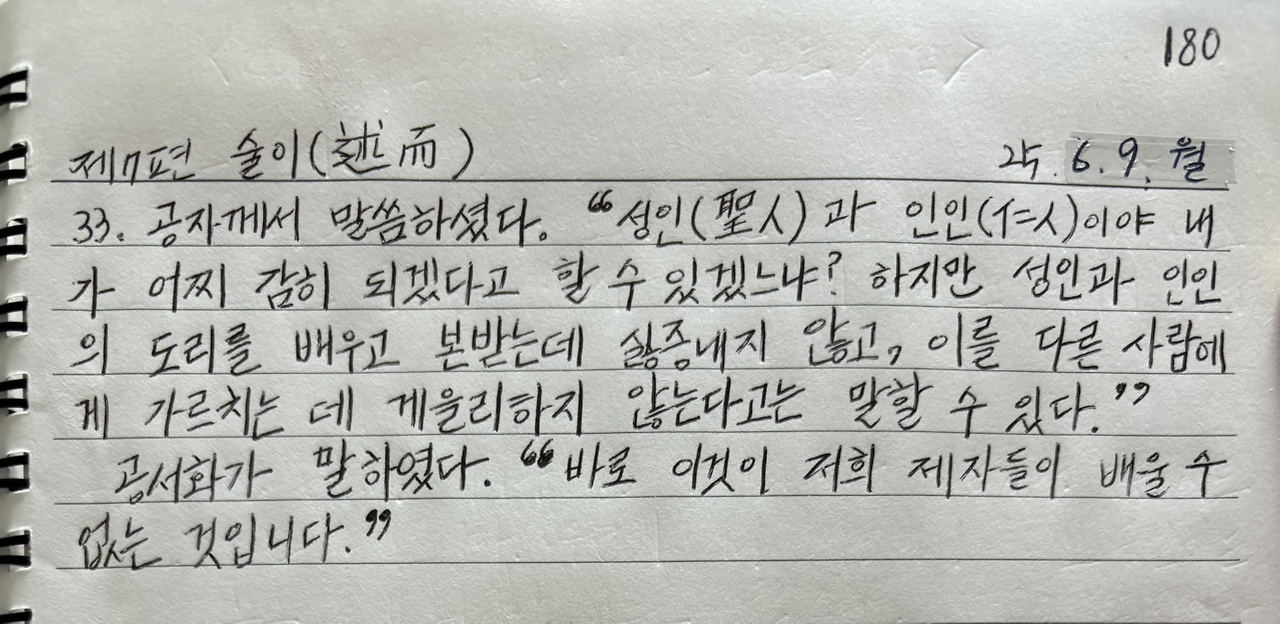 180
제7편 술이(述而) 25. 6. 9. 월
33. 공자께서 말씀하셨다. “성인(聖人)과 인인(仁人)이야 내
가 어찌 감히 되겠다고 할 수 있겠느냐? 하지만 성인과 인인
의 도리를 배우고 본받는데 싫증내지 않고, 이를 다른 사람에
게 가르치는 데 게을리하지 않는다고는 말할 수 있다.”
공서화가 말하였다. “바로 이것이 저희 제자들이 배울 수
없는 것입니다.”